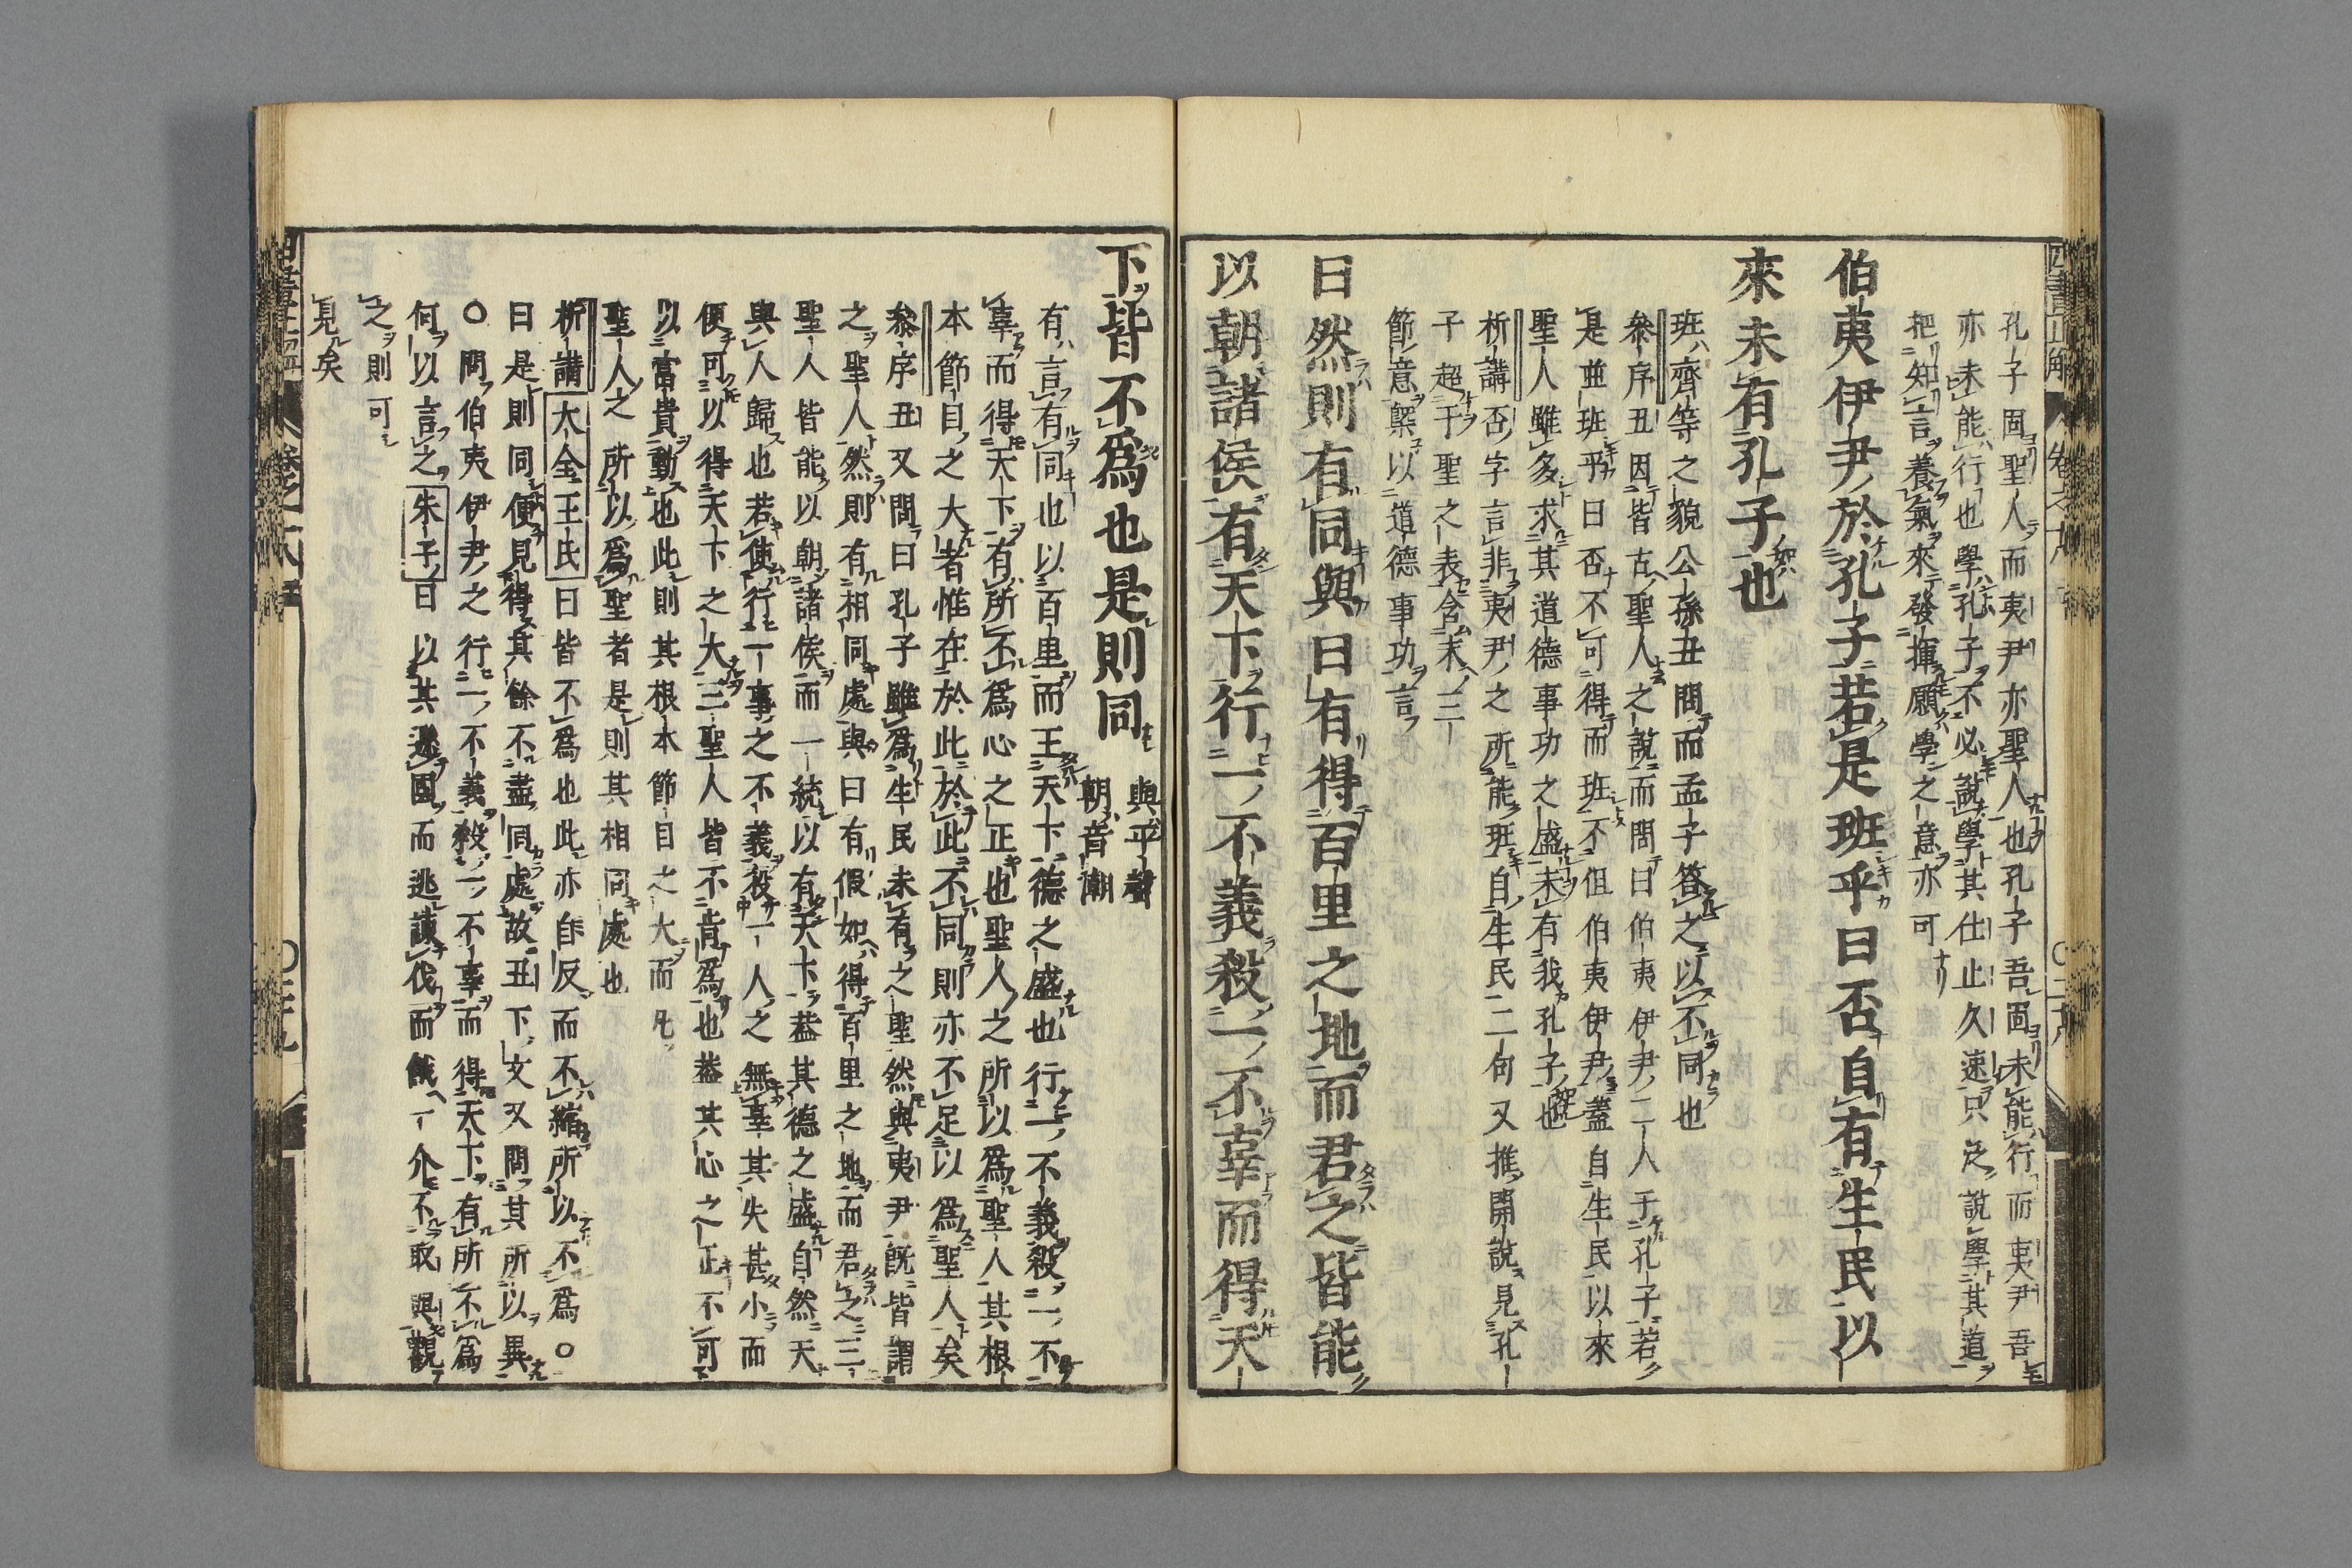 孔子固聖人而夷尹亦聖人也孔子吾固未能行而夷尹吾
亦未能行也學孔子不必說學其仕止久速只泛說學其道
把知言養氣來發揮願學之意亦可
伯夷伊尹於孔子若是班乎曰否自有生民以
來未有孔子也
班齊等之貌公孫丑問而孟子答之以不同也
參序丑因皆古聖人之說而問曰伯夷伊尹二人于孔子若
是並班乎曰否不可得而班不但伯夷伊尹蓋自生民以來
聖人雖多求其道德事功之盛未有我孔子也
析講否字言非夷尹之所能班自生民二句又推開說見孔
子超于聖之表含末三
節意槩以道德事功言
曰然則有同與曰有得百里之地而君之皆能
以朝諸侯有天下行一不義殺一不辜而得天
下皆不爲也是則同
與平聲
朝音潮
有言有同也以百里而王天下德之盛也行一不義殺一不
辜而得天下有所不爲心之正也聖人之所以爲聖人其根
本節目之大者惟在於此於此不同則亦不足以爲聖人矣
參序丑又問曰孔子雖爲生民未有之聖然與夷尹既皆謂
之聖人然則有相同處與曰有假如得百里之地而君之三
聖人皆能以朝諸侯而一統以有天下蓋其德之盛自然天
與人歸也若使行一事之不義殺一人之無辜其失甚小而
便可以得天下之大三聖人皆不肯爲也蓋其心之正不可
以富貴動也此則其根本節目之大而凡
聖人之所以爲聖者是則其相同處也
析講大全王氏曰皆不爲也此亦自反而不縮所以不爲○
曰是則同便見得其餘不盡同處故丑下文又問其所以異
○問伯夷伊尹之行一不義殺一不辜而得天下有所不爲
何以言之朱子曰以其遜國而逃諫伐而餓一介不取與觀
之則可
見矣
四書正解
卷之十六
四書正解